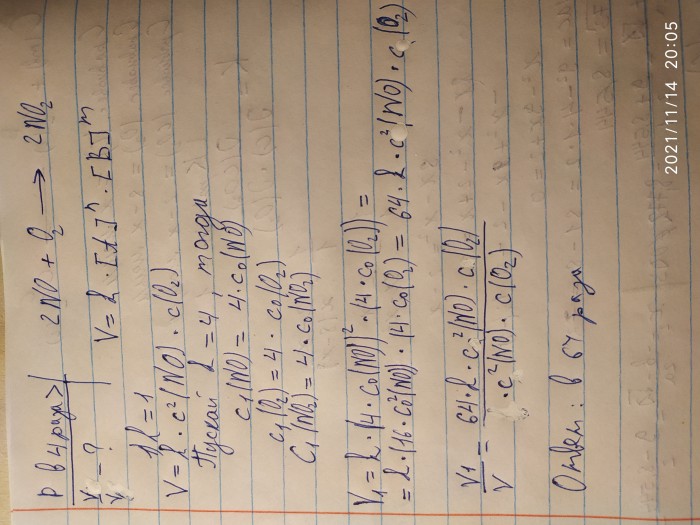 P в 4 раза > | 2NO + O₂ → 2NO₂
V₁/V = ? | V = k · [A]ⁿ · [B]ᵐ
1) k = 1
V = k · c²(NO) · c(O₂)
Пускай k = 4, тогда
c₁(NO) = 4 · c₀(NO)
c₁(O₂) = 4 · c₀(O₂)
C₁(NO₂) = 4 · c₀(NO₂)
V₁ = k · (4 · c₀(NO))² · (4 · c₀(O₂)) =
= k · (16 · c₀²(NO)) · (4 · c₀(O₂) = 64 · k · c²(NO) · c(O₂)
V₁/V = 64 · k · c²(NO) · c(O₂) / · c²(NO) · c(O₂)
Ответ: в 64 раза
2021/11/14 20:05